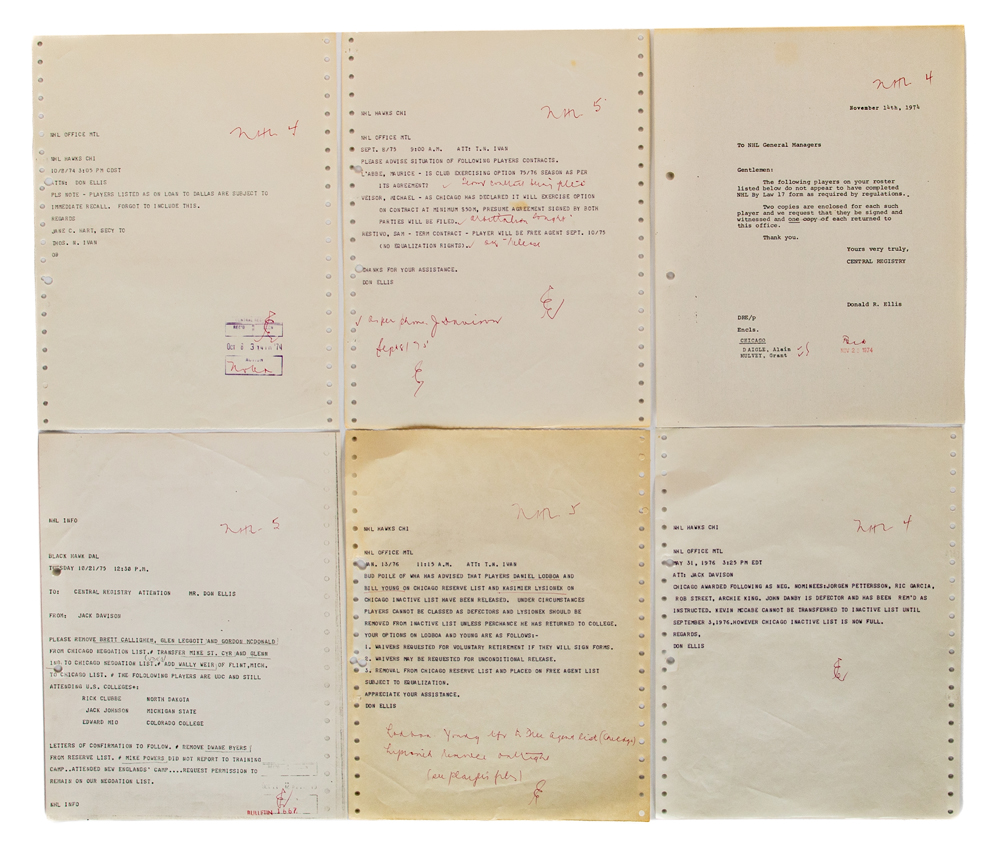 NHL 4
NHL OFFICE MTL
NHL HAWKS CHI
10/8/74 3:05 PM CDST
ATTN: DON ELLIS
PLS NOTE - PLAYERS LISTED AS ON LOAN TO DALLAS ARE SUBJECT TO
IMMEDIATE RECALL. FORGOT TO INCLUDE THIS.
REGARDS
JANE C. HART, SECY TO
THOS. N. IVAN
NHL 5
NHL HAWKS CHI
NHL OFFICE MTL
SEPT. 8/75 9:00 A.M. ATT: T.N. IVAN
PLEASE ADVISE SITUATION OF FOLLOWING PLAYERS CONTRACTS.
L'ABBE, MAURICE - IS CLUB EXERCISING OPTION 75/76 SEASON AS PER
ITS AGREEMENT?
VEISOR, MICHAEL - AS CHICAGO HAS DECLARED IT WILL EXERCISE OPTION
ON CONTRACT AT MINIMUM $50M, PRESUME AGREEMENT SIGNED BY BOTH
PARTIES WILL BE FILED.
RESTIVO, SAM - TERM CONTRACT - PLAYER WILL BE FREE AGENT SEPT. 10/75
(NO EQUALIZATION RIGHTS).
THANKS FOR YOUR ASSISTANCE.
DON ELLIS
as per phone J Davison
NHL 4
November 14th, 1974
To NHL General Managers
Gentlemen:
The following players on your roster
listed below do not appear to have completed
NHL By Law 17 form as required by regulations.
Two copies are enclosed for each such
player and we request that they be signed and
witnessed and one copy of each returned to
this office.
Thank you.
Yours very truly,
CENTRAL REGISTRY
Donald R. Ellis
DRE/p
Encls.
CHICAGO
DAIGLE, Alain
MULVEY, Grant
NHL 5
NHL INFO
BLACK HAWK DAL
TUESDAY 10/21/75 12:30 P.M.
TO: CENTRAL REGISTRY ATTENTION MR. DON ELLIS
FROM: JACK DAVISON
PLEASE REMOVE BRETT CALLIGHEN, GLEN LEGGOTT AND GORDON MCDONALD
FROM CHICAGO NEGOATION LIST.# TRANSFER MIKE ST. CYR AND GLENN
ING TO CHICAGO NEGOATION LIST.# ADD WALLY WEIR OF FLINT,MICH.
TO CHICAGO LIST. # THE FOLOLOWING PLAYERS ARE UDC AND STILL
ATTENDING U.S. COLLEGES*:
RICK CLUBBE NORTH DAKOTA
JACK JOHNSON MICHIGAN STATE
EDWARD MIO COLORADO COLLEGE
LETTERS OF CONFIRMATION TO FOLLOW. # REMOVE DWANE BYERS
FROM RESERVE LIST. # MIKE POWERS DID NOT REPORT TO TRAINING
CAMP..ATTENDED NEW ENGLANDS' CAMP....REQUEST PERMISSION TO
REMAIN ON OUR NEGOATION LIST.
NHL INFO
NHL 5
NHL HAWKS CHI
NHL OFFICE MTL
JAN. 13/76 11:15 A.M. ATT: T.N. IVAN
BUD POILE OF WHA HAS ADVISED THAT PLAYERS DANIEL LODBOA AND
BILL YOUNG ON CHICAGO RESERVE LIST AND KASIMIER LYSIONEK ON
CHICAGO INACTIVE LIST HAVE BEEN RELEASED. UNDER CIRCUMSTANCES
PLAYERS CANNOT BE CLASSED AS DEFECTORS AND LYSIONEK SHOULD BE
REMOVED FROM INACTIVE LIST UNLESS PERCHANCE HE HAS RETURNED TO COLLEGE.
YOUR OPTIONS ON LODBOA AND YOUNG ARE AS FOLLOWS:-
1. WAIVERS REQUESTED FOR VOLUNTARY RETIREMENT IF THEY WILL SIGN FORMS.
2. WAIVERS MAY BE REQUESTED FOR UNCONDITIONAL RELEASE.
3. REMOVAL FROM CHICAGO RESERVE LIST AND PLACED ON FREE AGENT LIST
SUBJECT TO EQUALIZATION.
APPRECIATE YOUR ASSISTANCE.
DON ELLIS
NHL 4
NHL HAWKS CHI
NHL OFFICE MTL
MAY 31, 1976 3:25 PM EDT
ATT: JACK DAVISON
CHICAGO AWARDED FOLLOWING AS NEG. NOMINEES:JORGEN PETTERSSON, RIC GARCIA,
ROB STREET, ARCHIE KING. JOHN DANBY IS DEFECTOR AND HAS BEEN REM'D AS
INSTRUCTED. KEVIN MCCABE CANNOT BE TRANSFERRED TO INACTIVE LIST UNTIL
SEPTEMBER 3,1976,HOWEVER CHICAGO INACTIVE LIST IS NOW FULL.
REGARDS,
DON ELLIS